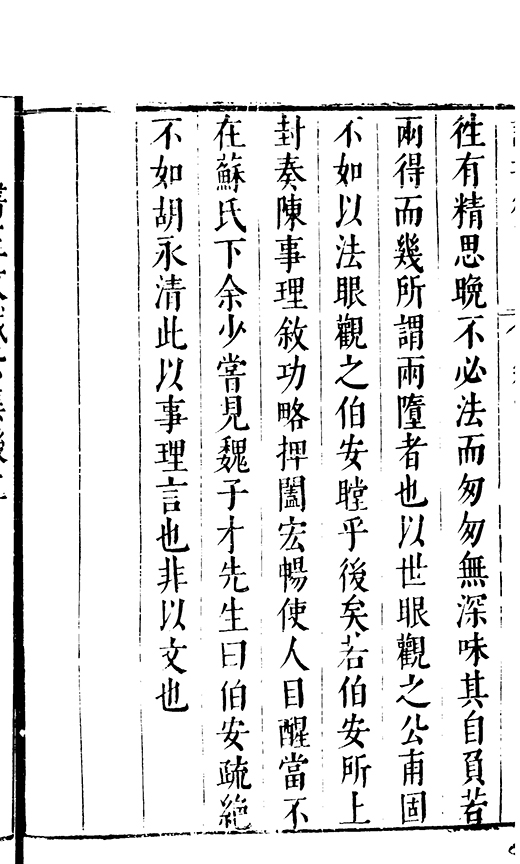 徃有精思晩不必法而匆匆無深味其自負若
兩得而幾所謂兩墮者也以世眼觀之公甫固
不如以法眼觀之伯安瞠乎後矣若伯安所上
封奏陳事理敘功略押闔宏暢使人目醒當不
在蘇氏下余少嘗見魏子才先生曰伯安疏絕
不如胡永清此以事理言也非以文也